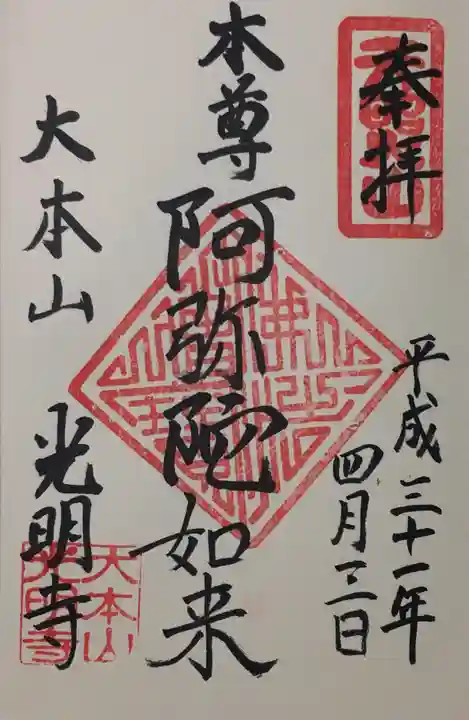 奉拝
平成三十一年
四月三日
本尊
阿弥陀如来
大本山 光明寺
大本山
光明寺